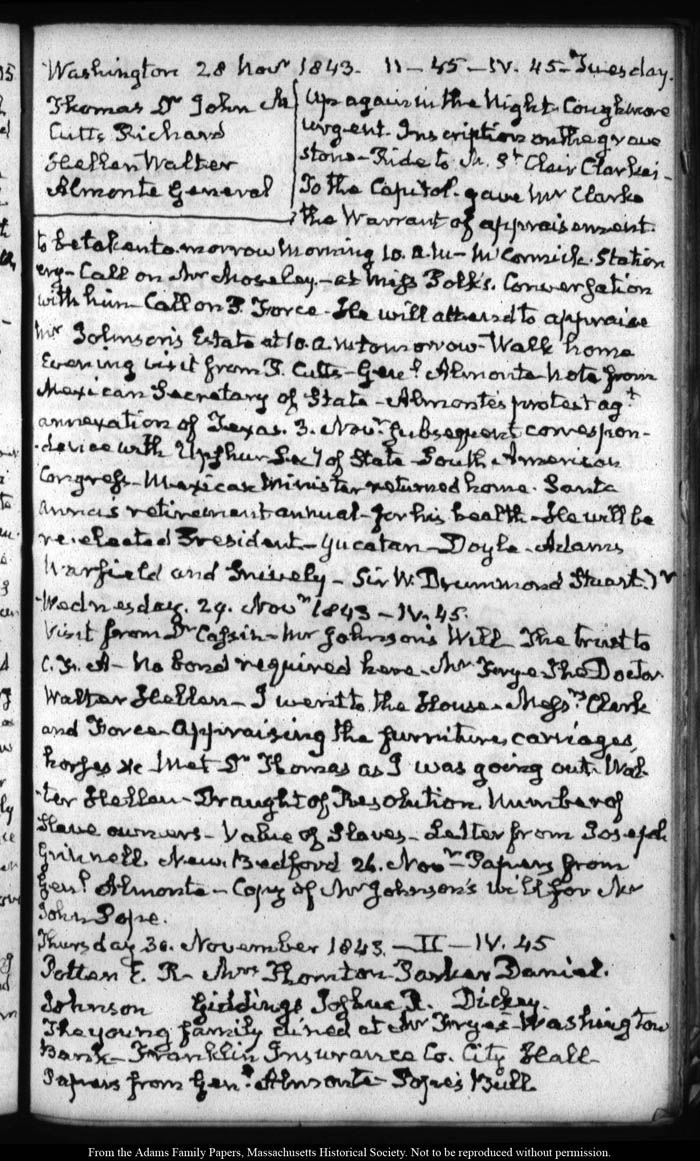 Washington 28 Novr 1843. II–45–IV.45–Tuesday.
Thomas Dr John M
Cutts Richard
Hellen Walter
Almonte General
Up again in the Night. Cough more
urgent. Inscription on the grave
stone–Ride to M. St Clair Clarke's–
To the Capitol. gave Mr Clarke
the Warrant of appraisement.
to be taken to-morrow Morning 10. a.m–McCormick. Station
ery–Call on Mr Moseley.–at Miss Polk's. Conversation
with him–Call on P. Force–He will attend to appraise
Mr Johnson's Estate at 10. a.m tomorrow–Walk home
Evening visit from R. Cutts–Genl Almonte–Note from
Mexican Secretary of State–Almonte's protest agt
annexation of Texas. 3. Novr. Subsequent correspon-
dence with Upshur Secy of State–South American
Congress–Mexican Minister returned home. Santa
Anna's retirement annual–for his health–He will be
re-elected President–Yucatan–Doyle–Adams
Warfield and Snively–Sir W. Drummond Stuart.
Wednesday. 29. Novr 1843–IV.45.
Visit from Dr Cassin–Mr Johnson's Will. The trust to
C. F. A–No bond required here–Mr Frye–The Doctor
Walter Hellen–I went to the House–Messrs Clark
and Force–Appraising the furniture, carriages,
horses &c Met Dr Thomas as I was going out. Wal-
ter Hellen–Draught of Resolution. Number of
Slave owners–Value of Slaves–Letter from Joseph
Grinnell. New Bedford 26. Novr–Papers from
Genl Almonte–Copy of Mr Johnson's will for Mr
John Pope.
Thursday 30. November 1843.–II–IV.45
Potten E. R–Mrs Thornton–Parker Daniel.
Johnson Giddings Joshua R. Dickey.
The young family dined at Mr Frye's–Washington
Bank–Franklin Insurance Co. City Hall–
Papers from Genl Almonte–Pope's Bull
From the Adams Family Papers, Massachusetts Historical Society. Not to be reproduced without permission.